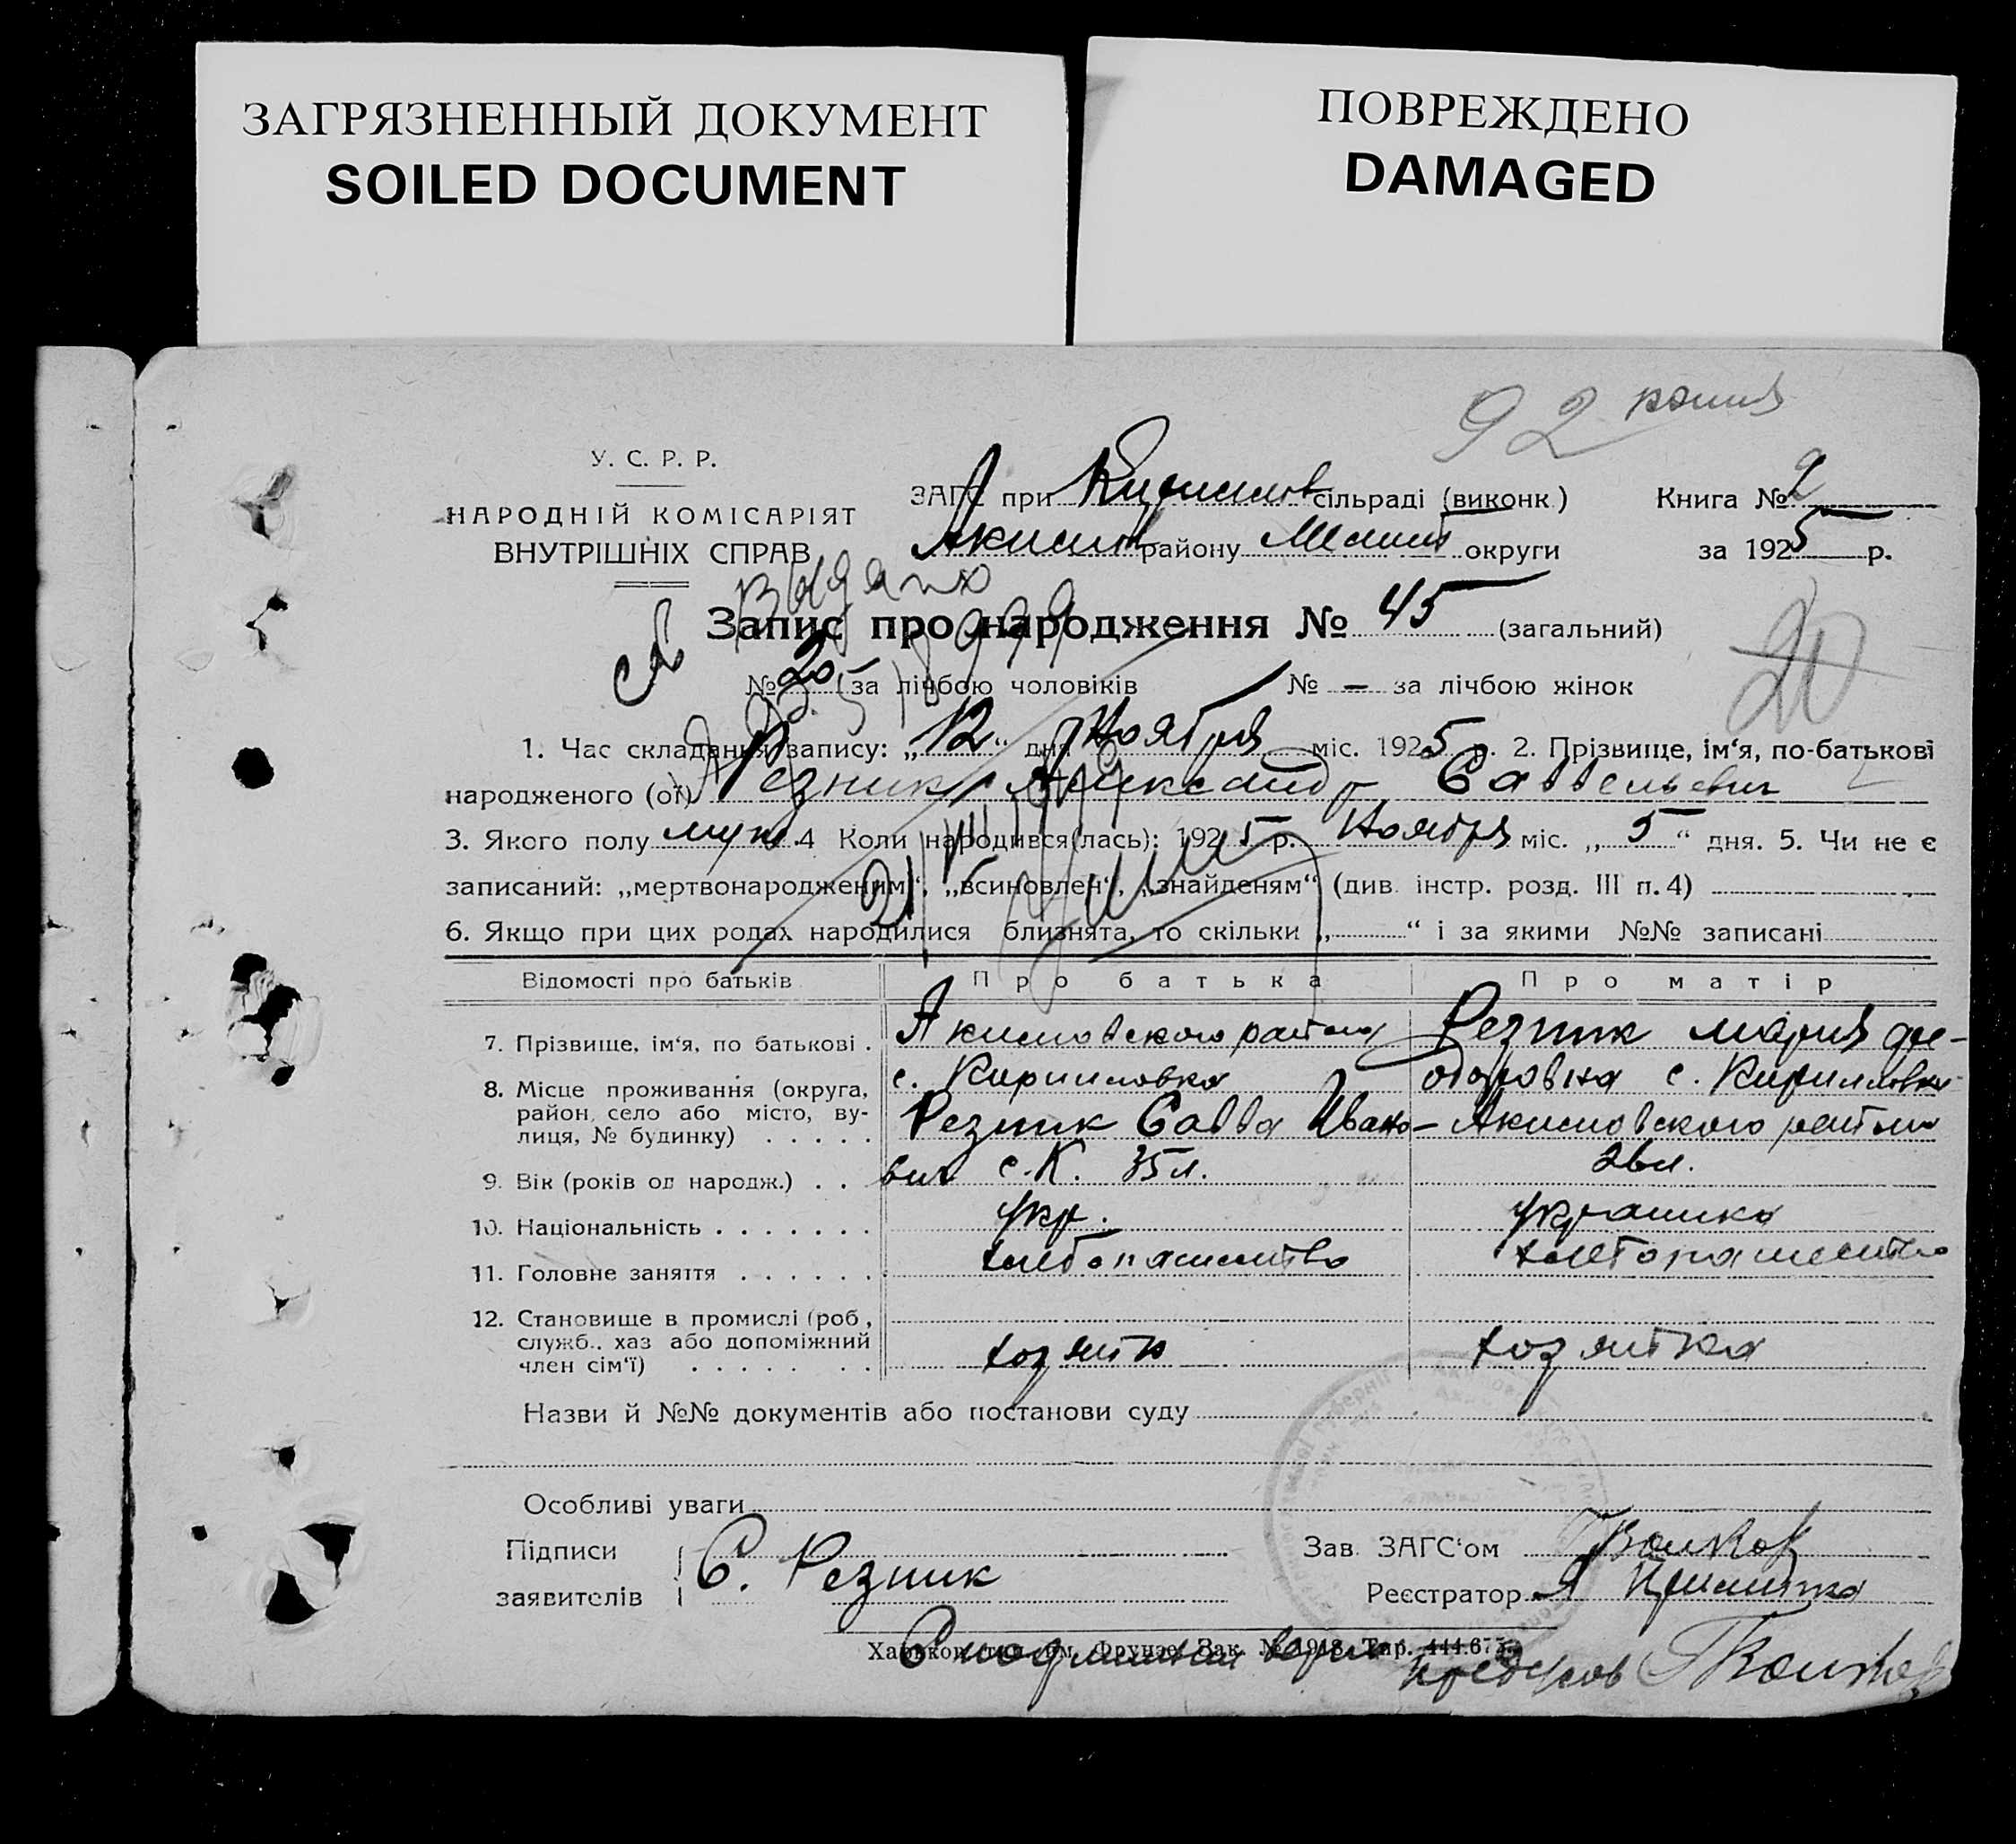 ЗАГРЯЗНЕННЫЙ ДОКУМЕНТ
SOILED DOCUMENT
ПОВРЕЖДЕНО
DAMAGED
92
У. С. Р. Р.
НАРОДНІЙ КОМІСАРІЯТ
ВНУТРІШНІХ СПРАВ
ЗАГС при Кирилов сільраді (виконк.) Книга № 2
Акимов району Мелит округи за 1925 р.
Выдано
Запис про народження № 45 (загальний)
№ 20 за лічбою чоловіків № — за лічбою жінок
20
1. Час складання запису: „12“ дня Ноября міс. 1925 р. 2. Прізвище, ім‘я, по-батькові
народженого (ої) Резник Александр Саввельевич
3. Якого полу муж. 4 Коли народився(лась): 1925 р. Ноября міс. „5“ дня. 5. Чи не є
записаний: „мертвонародженим“, „всиновлен“, „знайденям“ (див. інстр. розд. III п. 4)
6. Якщо при цих родах народилися близнята, то скільки „ “ і за якими №№ записані
Відомості про батьків Про батька Про матір
7. Прізвище, ім‘я, по батькові . Акимовского района Резник Мария Фе-
8. Місце проживання (округа, с. Кирилловка одоровна с. Кирилловка
район, село або місто, ву-
лиця, № будинку) . . . . . Резник Савва Ивано- Акимовского района
9. Вік (років од народж.) . . вич с. К. 35 л. 26 л.
10. Національність . . . . . . . укр. украинка
11. Головне заняття . . . . . . хлебопашество хлебопашество
12. Становище в промислі (роб.,
служб., хаз або допоміжний
член сім‘ї) . . . . . . . хозяин хозяйка
Назви й №№ документів або постанови суду
Особливі уваги
Підписи
заявителів С. Резник
Зав. ЗАГС‘ом Волков
Реєстратор
Харьков, тип. им. Фрунзе. Зак. № 1918. Тир.
С подлинным верно